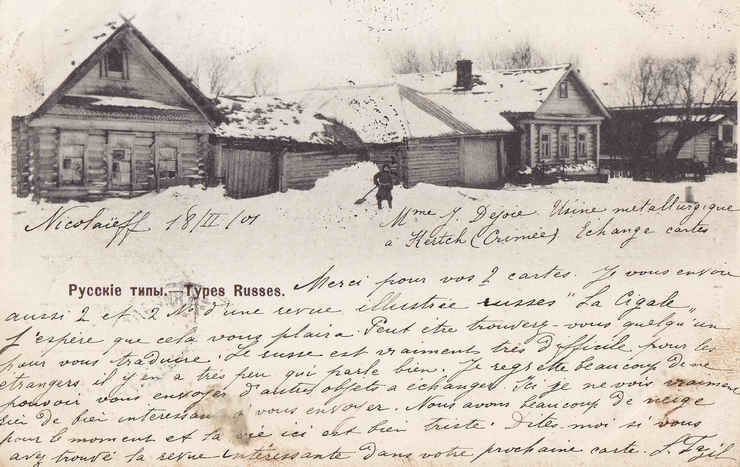 Nicolaïeff 18/II/01
Mme J. Dejoie Usine metallurgique
a Kertch (Crimée) Echange cartes
Русскіе типы.—Types Russes.
Merci pour vos 2 cartes. Je vous envoie
aussi 2 et 2 No d'une revue illustrée russes "La Cigale"
J'espère que cela vous plaira. Peut être trouverez-vous quelqu'un
pour vous traduire. Le russe est vraiment très difficile pour les
etrangers il y en a très peu qui parle bien. Je regrette beaucoup de ne
pouvoir vous envoyer d'autres objets a échanger. Ici je ne vois vraiment
rien de bien interessant a vous envoyer. Nous avons beaucoup de neige
pour le moment et la vie ici est bien triste. Dites-moi si vous
avez trouvé la revue interessante dans votre prochaine carte.